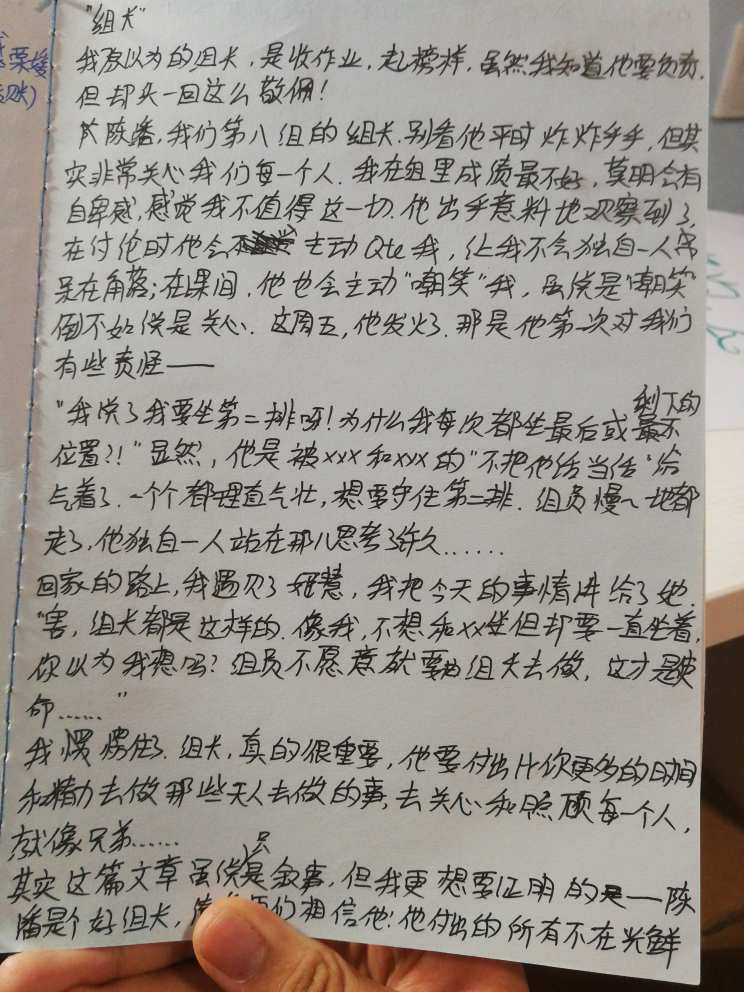 "组长"
我原以为的组长，是收作业，起榜样，虽然我知道他要负责，
但却头一回这么敬佩！
陈潘，我们第八组的组长.别看他平时炸炸乎乎，但其
实非常关心我们每一个人.我在组里成绩最不好，莫明会有
自卑感，感觉我不值得这一切.他出乎意料地观察到了，
在讨伦时他会主动Qte我，让我不会独自一人
呆在角落；在课间，他也会主动"嘲笑"我，虽说是"嘲笑"
倒不如说是关心.这周五，他发火了.那是他第一次对我们
有些责怪——
"我说了我要坐第二排呀！为什么我每次都坐最后或剩下的
位置？！"显然，他是被xxx和xxx的"不把他话当话"给
气着了.一个个都理直气壮，想要守住第二排.组员慢慢地都
走了，他独自一人站在那儿思考了许久……
回家的路上，我遇见了慧，我把今天的事情讲给了她.
"害，组长都是这样的.像我，不想和xx坐但却要一直坐着，
你以为我想吗？组员不愿意就要组长去做，这才是使
命……"
我愣愣住了.组长，真的很重要，他要付出比你更多的时间
和精力去做那些无人去做的事，去关心和照顾每一个人，
就像兄弟……
其实这篇文章虽说只是叙事，但我更想要证明的是——陈
潘是个好组长，们相信他！他付出的所有不在光鲜